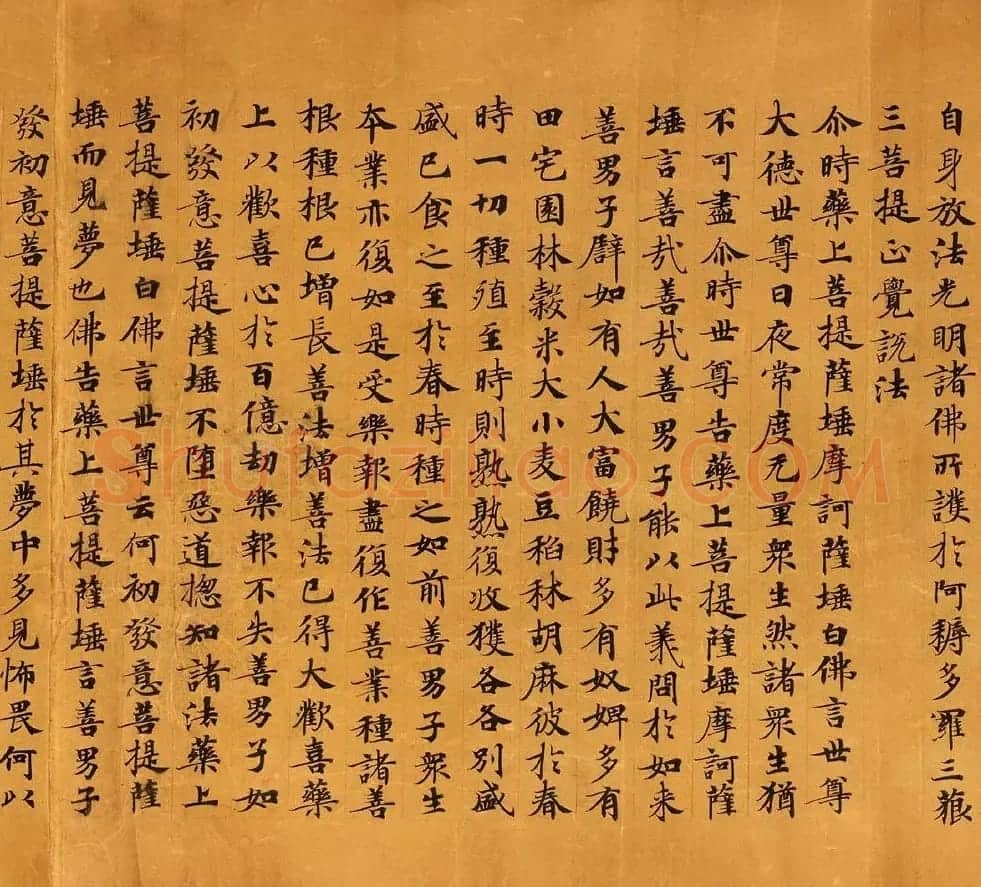 自身放法光明諸佛所護於阿耨多羅三藐
三菩提正覺說法
尒時藥上菩提薩埵摩訶薩埵白佛言世尊
大德世尊日夜常度无量眾生然諸眾生猶
不可盡尒時世尊告藥上菩提薩埵摩訶薩
埵言善哉善哉善男子能以此義問於如来
善男子辟如有人大富饒財多有奴婢多有
田宅園林穀米大小麦豆稻秫胡麻彼於春
時一切種殖至時則熟熟復收獲各各別盛
盛已食之至於春時種之如前善男子眾生
本業亦復如是受樂報盡復作善業種諸善
根種根已增長善法增善法已得大歡喜藥
上以歡喜心於百億劫樂報不失善男子如
初發意菩提薩埵不墮惡道揔知諸法藥上
菩提薩埵白佛言世尊云何初發意菩提薩
埵而見夢也佛告藥上菩提薩埵言善男子
發初意菩提薩埵於其夢中多見怖畏何以
Shufaziliao.COM